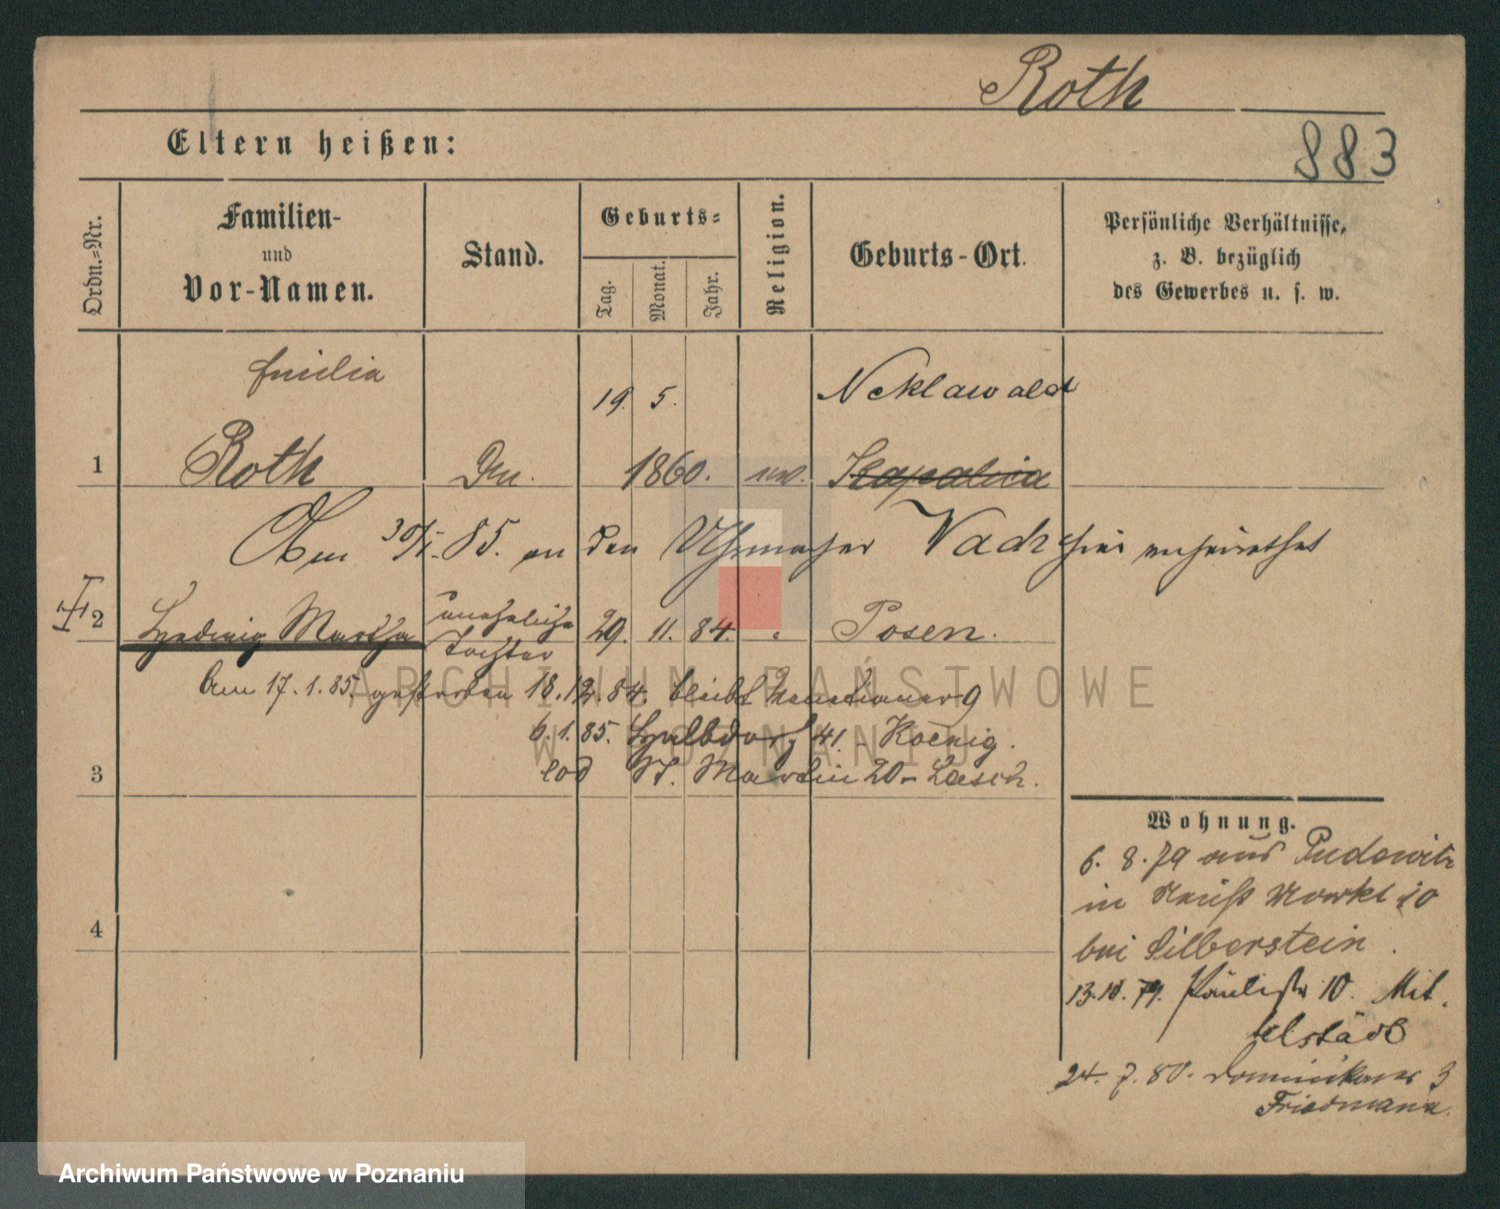 Roth
883
Eltern heißen:
Ordn.-Nr.
Familien-
und
Vor-Namen.
Stand.
Geburts-
Tag.
Monat.
Jahr.
Religion.
Geburts-Ort.
Persönliche Verhältnisse,
z. B. bezüglich
des Gewerbes u. s. w.
Emilia
19. 5. Neklawald
1 Roth 1860.
Am 30/I. 85. an den Uhrmacher hier verheirathet
2 Hedwig Martha uneheliche Tochter 29. 11. 84. Posen.
Am 17. 1. 85. gestorben 18. 12. 84. bleibt 9
6. 1. 85. Halbdorf 41 - Koenig.
eod St. Martin 20 - Lasch.
3
4
Wohnung.
6. 8. 79 aus Pudewitz
in Markt 10
bei Silberstein.
13. 10. 79. 10. Mit-
telstädt
24. 7. 80. Dominikaner 3
Friedmann.
ARCHIWUM PAŃSTWOWE
W POZNANIU
Archiwum Państwowe w Poznaniu